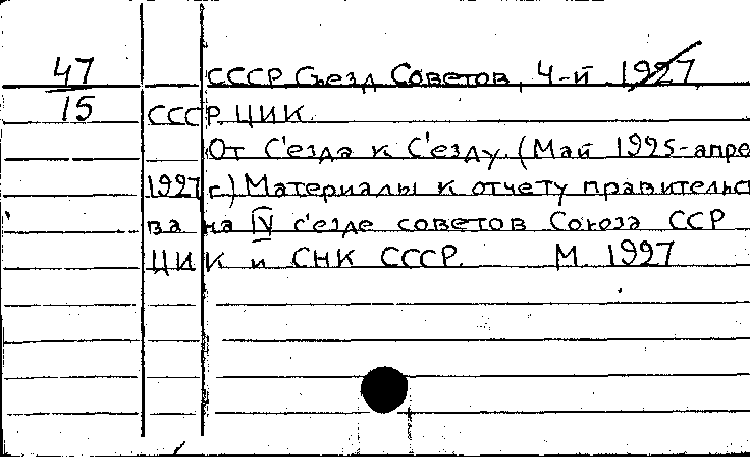 47 СССР Съезд Советов, 4-й 1927
15 СССР ЦИК.
От С'езда к С'езду. (Май 1925-апре
1927 г.) Материалы к отчету правительс
ва на IV с'езде советов Союза ССР
ЦИК и СНК СССР. М. 1927